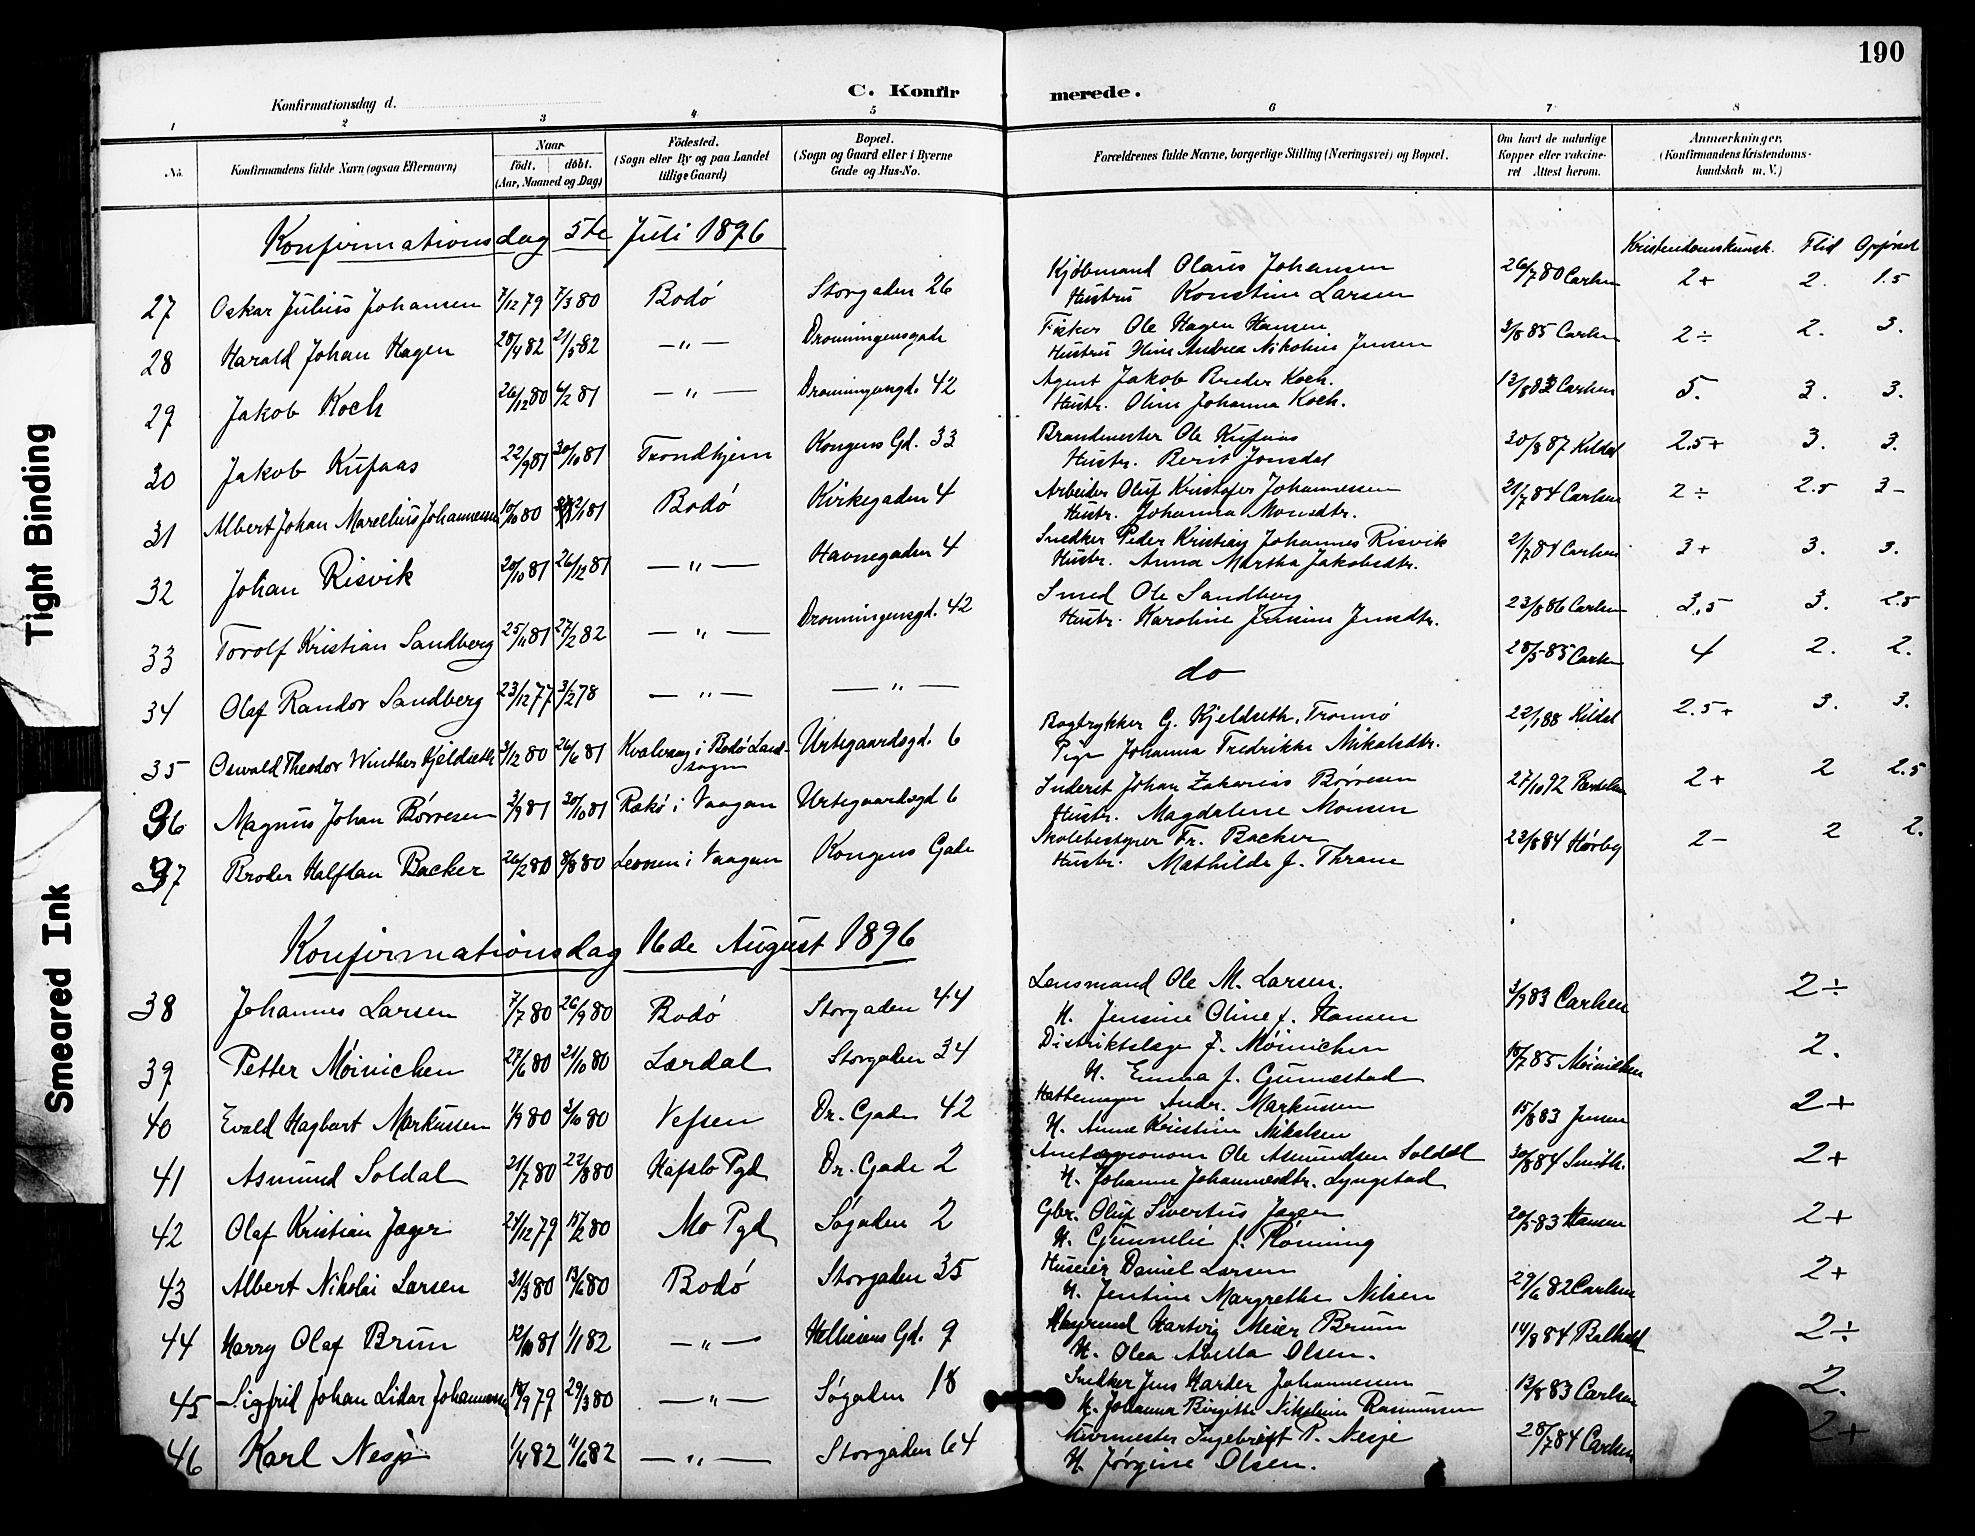 190
Konfirmationsdag d.
C. Konfir
merede.
1 2 3 4 5 6 7 8
No.
Konfirmandens fulde Navn (ogsaa Efternavn)
Naar
født. døbt.
(Aar, Maaned og Dag)
Födested.
(Sogn eller By og paa Landet
tillige Gaard)
Bopæl.
(Sogn og Gaard eller i Byerne
Gade og Hus-No.
Forældrenes fulde Navne, borgerlige Stilling (Næringsvei) og Bopæl.
Om havt de naturlige
Kopper eller vakcine-
ret Attest herom.
Anmærkninger.
(Konfirmandens Kristendoms-
kundskab m. V.)
Konfirmationsdag 5te Juli 1896
Kristendomskunsk. Flid Opførsel
27 Oskar Julius Johansen 7/12 79 7/3 80 Bodö Storgaden 26 Kjöbmand Olaus Johansen 26/7 80 Carlsen 2+ 2. 1.5
Hustru Konstine Larsen
28 Harald Johan Hagen 28/4 82 21/5 82 — " — Dronningensgade Fisker Ole Hagen Hansen 3/8 85 Carlsen 2÷ 2. 3.
Hustru Andrea Nikoline Jensen
29 Jakob Koch 26/12 80 6/2 81 — " — Dronningensgd. 42 Agent Jakob Breder Koch. 13/8 83 Carlsen 5. 3. 3.
Hustr. Oline Johanna Koch.
30 Jakob Kufaas 22/9 81 30/10 81 Trondhjem Kongens Gd. 33 Brandmester Ole Kufaas 30/8 87 Kildal 2.5+ 3. 3.
Hustr. Berit Jonsdat
31 Albert Johan Marelius Johannessen 10/10 80 Bodö Kirkegaden 4 Arbeider Oluf Kristofer Johannessen 21/7 84 Carlsen 2÷ 2.5 3-
Hustr. Johanna Monsdtr.
32 Johan Risvik 20/10 81 26/12 81 — " — Havnegaden 4 Snedker Peder Kristian Johannes Risvik 21/7 84 Carlsen 3+ 3. 3.
Hustr. Anna Martha Jakobsdtr.
33 Torolf Kristian Sandberg 25/11 81 27/2 82 — " — Dronningensgd. 42 Smed Ole Sandberg 23/8 86 Carlsen 3.5 3. 2.5
Hustr. Karoline Jensine Jensdtr.
34 Olaf Randor Sandberg 23/12 77 3/2 78 — " — — " — do 28/5 85 Carlsen 4 2. 2.
35 Oswald Theodor Winther Kjeldseth 3/12 80 26/6 81 Kvalvaag i Bodö Land- Urtegaardsgd. 6 Bogtrykker G. Kjeldseth, Tromsö 22/1 88 Kildal 2.5+ 3. 3.
sogn Pige Johanna Fredrikke Nikolsdtr.
36 Magnus Johan Börresen 3/9 81 30/10 81 Rækö i Vaagan Urtegaardsgd 6 Inderst Johan Zakarias Börresen 27/10 92 2+ 2 2.5
Hustr. Magdalene Monsen
37 Broder Halfdan Backer 26/2 80 8/8 80 i Vaagan Kongens Gade Skolebestyrer Fr. Backer 23/8 84 Hörby 2- 2 2.
Hustr. Mathilde f. Thrane
Konfirmationsdag 16de August 1896
38 Johannes Larsen 7/7 80 26/9 80 Bodö Storgaden 44 Lensmand Ole M. Larsen. 3/9 83 Carlsen 2÷
H. Jensine Oline f. Hansen
39 Petter Möinichen 27/6 80 21/10 80 Lærdal Storgaden 34 Distriktslæge F. Möinichen 18/7 85 Möinichen 2.
H. Emma f. Gunnestad
40 Evald Hagbart Markussen 1/9 80 3/10 80 Vefsen Dr. Gade 42 Hattemager Andr. Markussen 15/8 83 Jensen 2+
H. Anne Kristine Nikolsen
41 Asmund Soldal 21/7 80 22/8 80 Hafslo Pgd Dr. Gade 2 Amtsagronom Ole Asmundsen Soldal 30/8 84 Smith. 2+
H. Johanne Johannesdtr. Lyngstad
42 Olaf Kristian Jæger 24/12 79 15/2 80 Mo Pgd Sögaden 2 Gbr. Oluf Sivertus Jæger 20/5 83 Hansen 2+
H. Gunnelie f. Rönning
43 Albert Nikolai Larsen 31/3 80 13/6 80 Bodö Storgaden 35 Huseier Daniel Larsen 29/6 82 Carlsen 2+
H. Jentine Margrethe Nilsen
44 Harry Olaf Brun 12/10 81 1/1 82 — " — Gd. 9 Hartvig Meier Brun 14/8 84 2÷
H. Olea Abella Olsen.
45 Sigfrid Johan Lidar Johannessen 18/9 79 29/3 80 — " — Sögaden 18 Snedker Jens Harder Johannessen 13/8 83 Carlsen 2.
H. Johanna Birgitte Nikoline Rasmussen
46 Karl Nesje 1/4 82 11/6 82 — " — Storgaden 64 Murmester Ingebrigt P. Nesje 28/7 84 Carlsen 2+
H. Jörgine Olsen.
Tight Binding
Smeared Ink